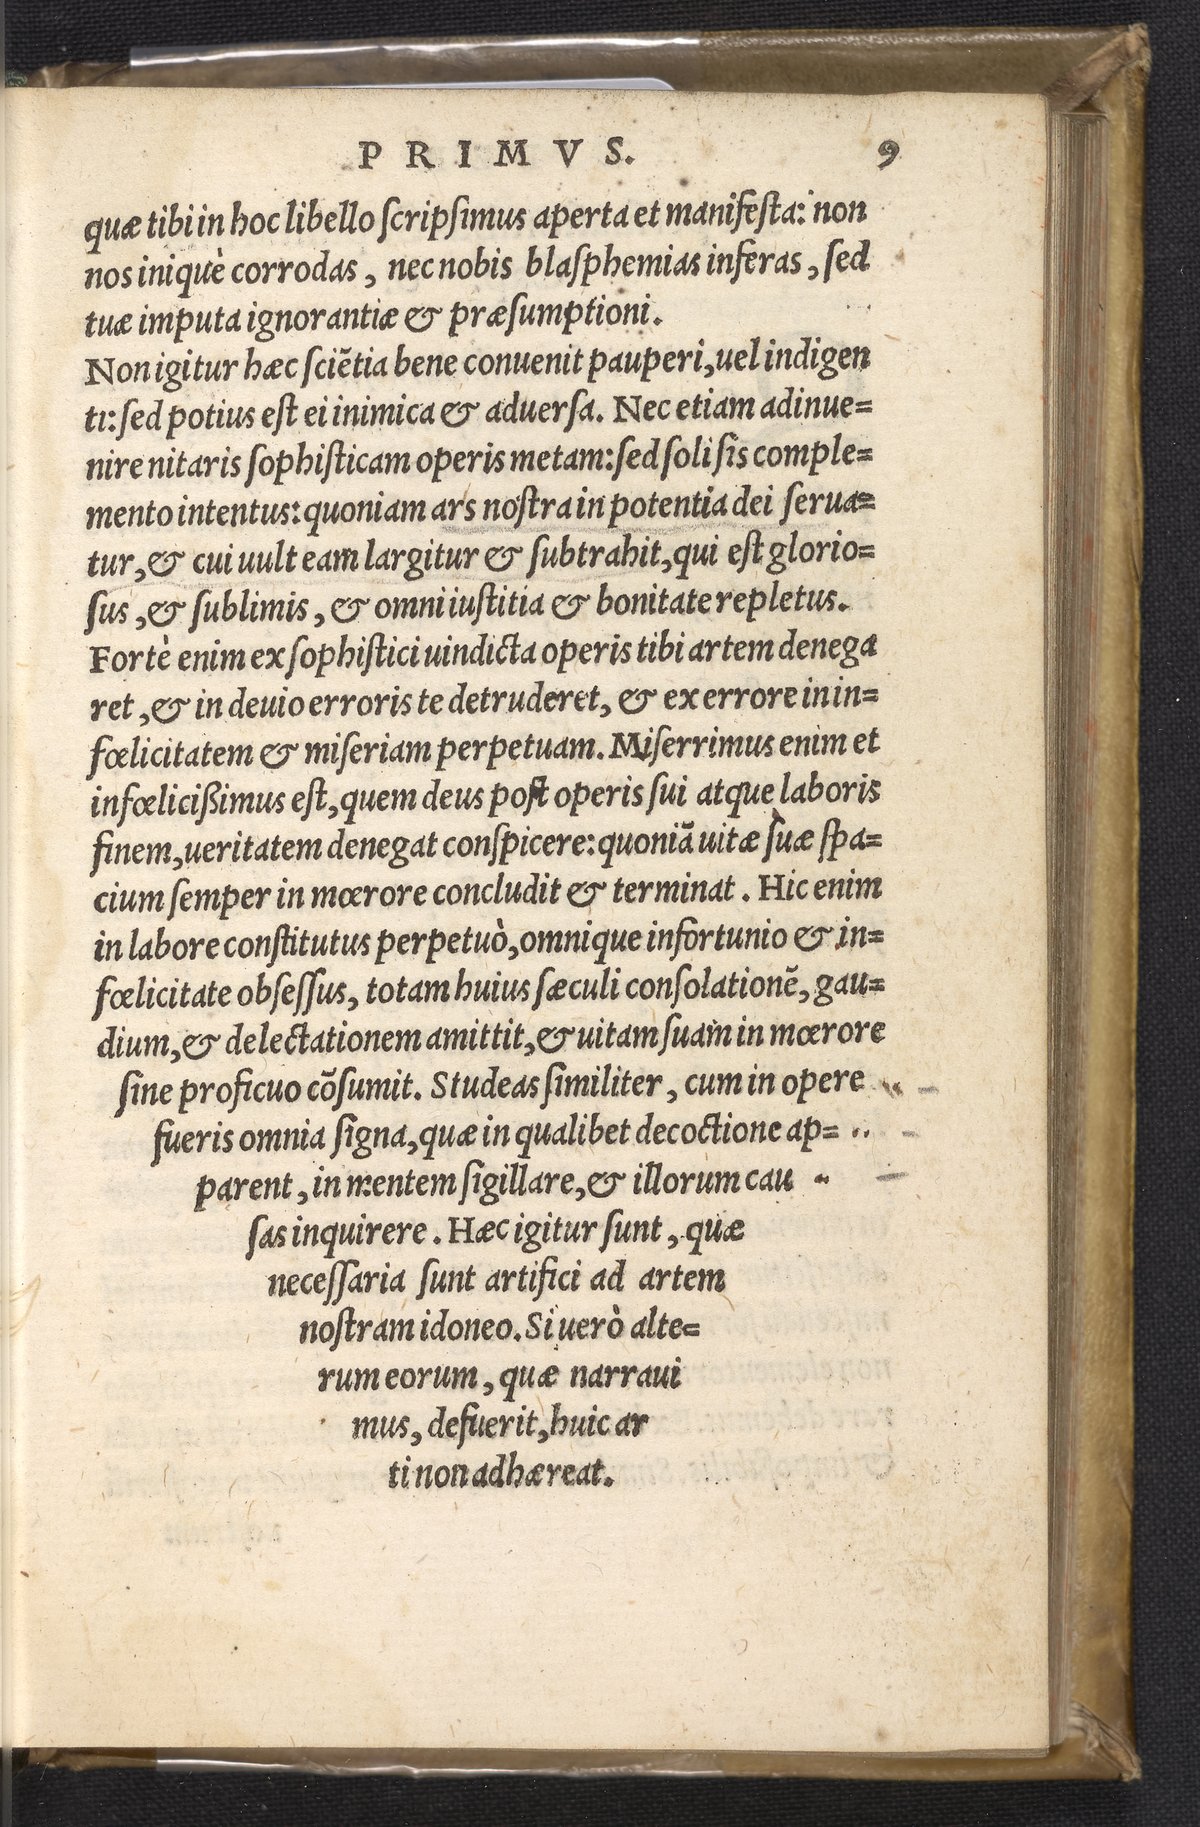 PRIMVS. 9
quæ tibi in hoc libello ſcripſimus aperta et manifeſta: non
nos iniquè corrodas, nec nobis blaſphemias inferas, ſed
tuæ imputa ignorantiæ & præſumptioni.
Non igitur hæc ſciẽtia bene conuenit pauperi, uel indigen
ti: ſed potius eſt ei inimica & aduerſa. Nec etiam adinue=
nire nitaris ſophiſticam operis metam: ſed ſoli ſis comple=
mento intentus: quoniam ars noſtra in potentia dei ſerua=
tur, & cui uult eam largitur & ſubtrahit, qui eſt glorio=
ſus, & ſublimis, & omni iuſtitia & bonitate repletus.
Fortè enim ex ſophiſtici uindicta operis tibi artem denega
ret, & in deuio erroris te detruderet, & ex errore in in=
fœlicitatem & miſeriam perpetuam. Miſerrimus enim et
infœlicißimus eſt, quem deus poſt operis ſui atque laboris
finem, ueritatem denegat conſpicere: quoniã uitæ ſuæ ſpa=
cium ſemper in mœrore concludit & terminat. Hic enim
in labore conſtitutus perpetuò, omnique infortunio & in=
fœlicitate obſeſſus, totam huius ſæculi conſolationẽ, gau=
dium, & delectationem amittit, & uitam ſuam in mœrore
ſine proficuo cõſumit. Studeas ſimiliter, cum in opere
fueris omnia ſigna, quæ in qualibet decoctione ap=
parent, in mentem ſigillare, & illorum cau
ſas inquirere. Hæc igitur ſunt, quæ
neceſſaria ſunt artifici ad artem
noſtram idoneo. Si uerò alte=
rum eorum, quæ narraui
mus, defuerit, huic ar
ti non adhæreat.